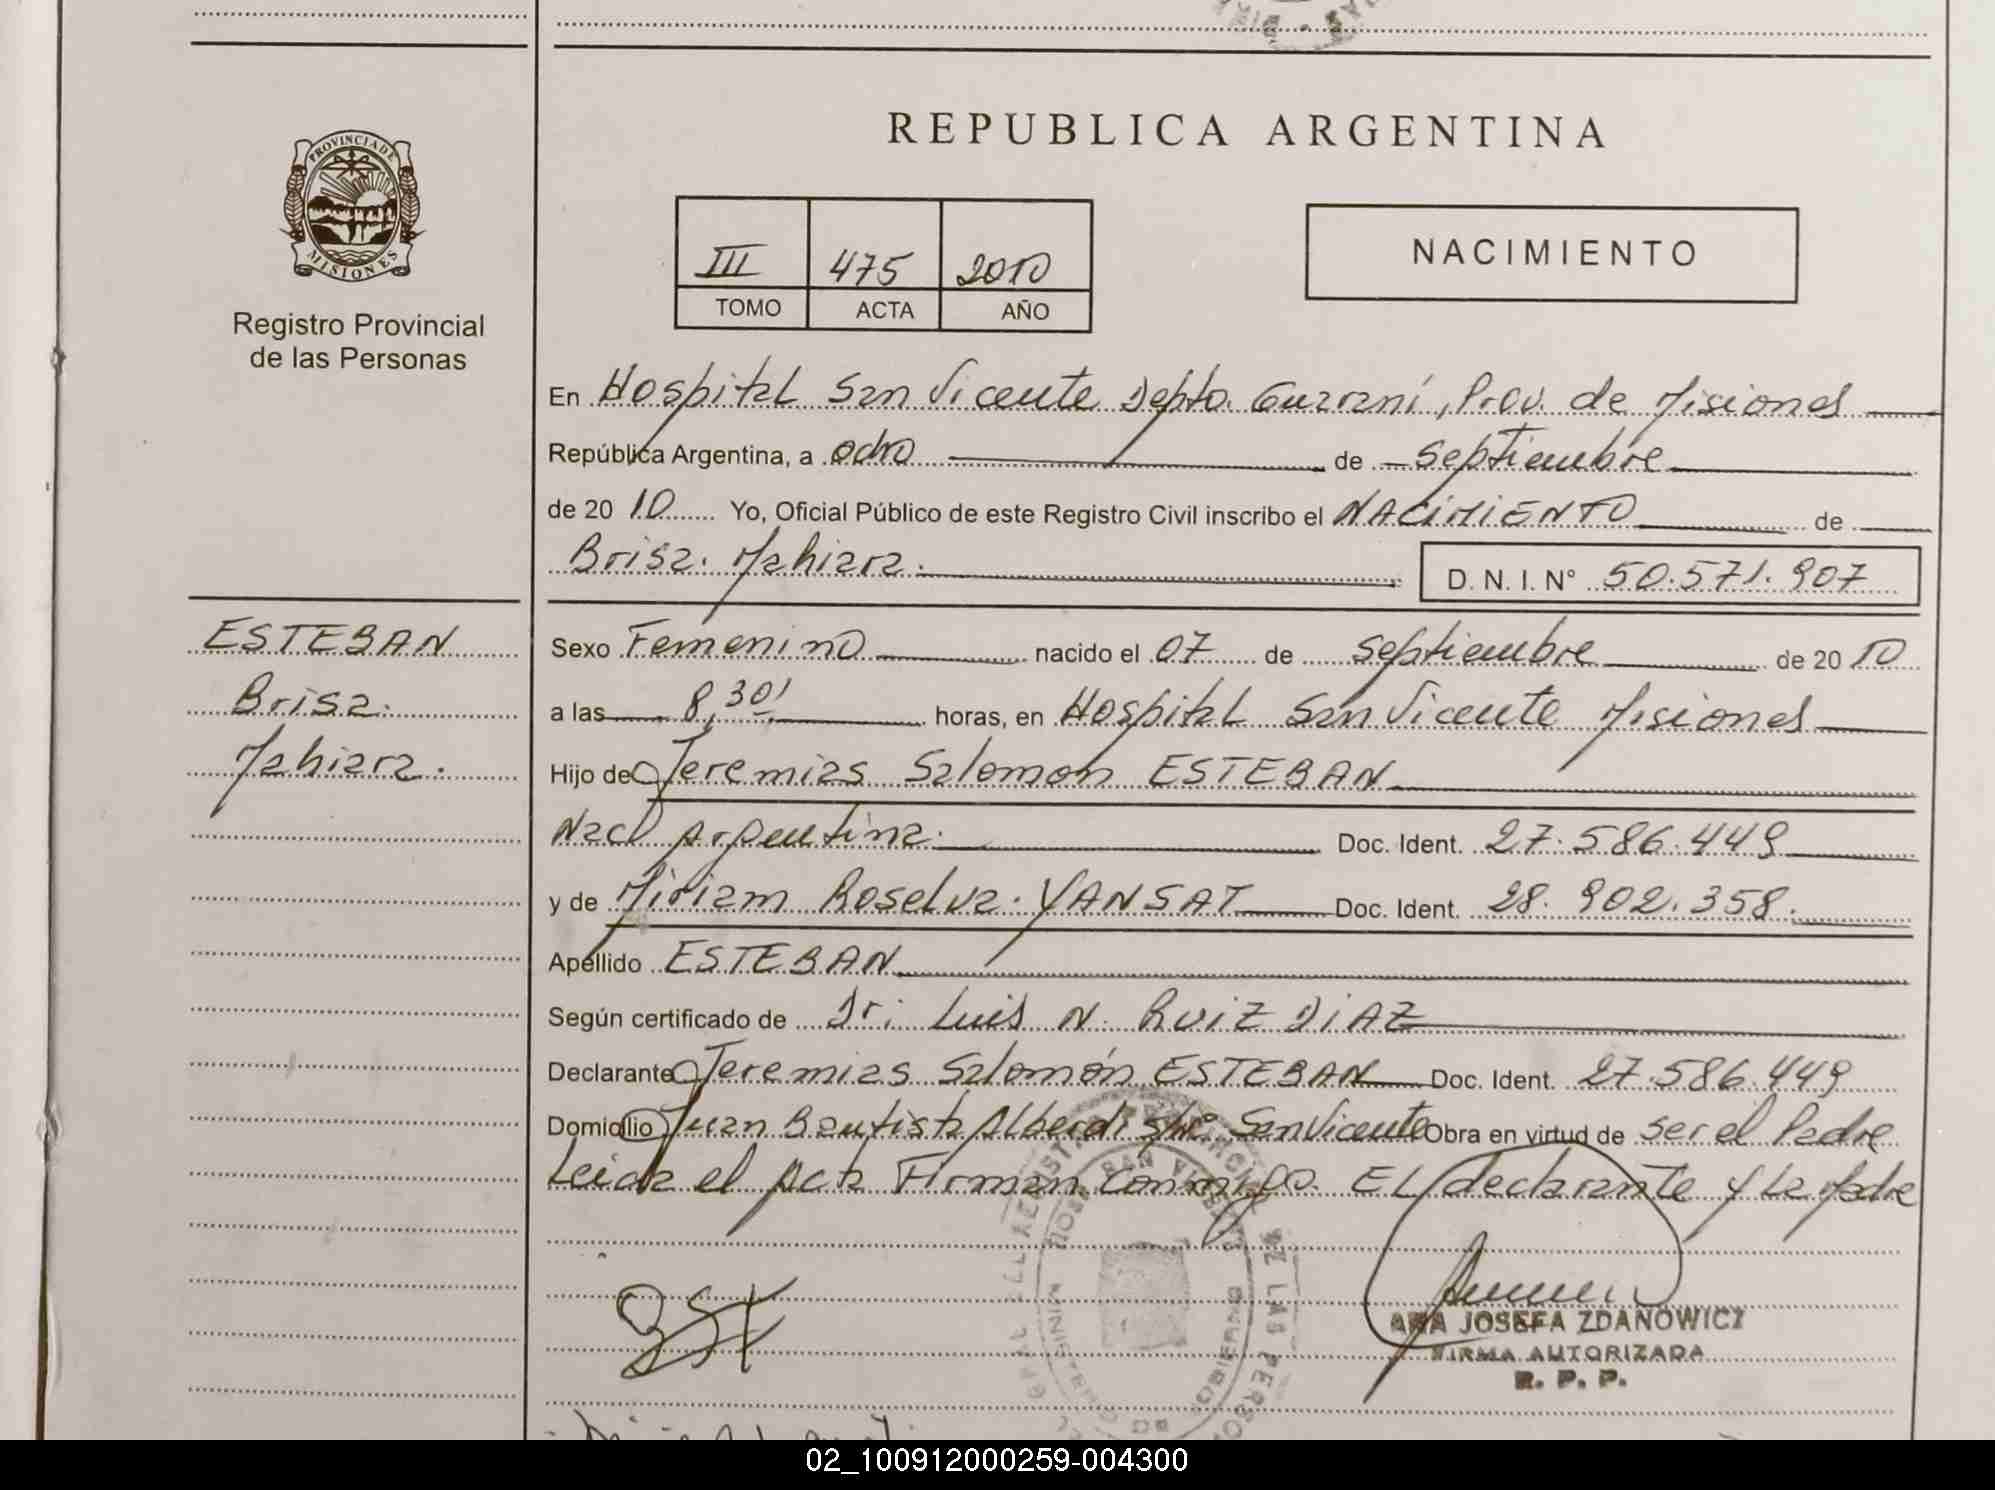 REPUBLICA ARGENTINA
PROVINCIA DE
MISIONES
Registro Provincial
de las Personas
III 475 2010
TOMO ACTA AÑO
NACIMIENTO
En Hospital San Vicente Depto. Guaraní, Prov. de Misiones
República Argentina, a ocho de septiembre
de 2010 Yo, Oficial Público de este Registro Civil inscribo el NACIMIENTO de
Brisa Mahiara.
D. N. I. N° 50.571.907
ESTEBAN
Brisa
Mahiara.
Sexo Femenino nacido el 07 de septiembre de 2010
a las 8,30' horas, en Hospital San Vicente Misiones
Hijo de Jeremias Salomon ESTEBAN
Nacl Argentina. Doc. Ident. 27.586.449
y de Miriam Roselva YANSAT Doc. Ident. 28.902.358.
Apellido ESTEBAN
Según certificado de Dr: Luis N. RUIZ DIAZ
Declarante Jeremias Salomón ESTEBAN Doc. Ident. 27.586.449
Domicilio Juan Bautista Alberdi s/nº San Vicente Obra en virtud de ser el Padre
Leida el Acta Firman conmigo. El declarante y la Madre
ANA JOSEFA ZDANOWICZ
FIRMA AUTORIZADA
R. P. P.
02_100912000259-004300